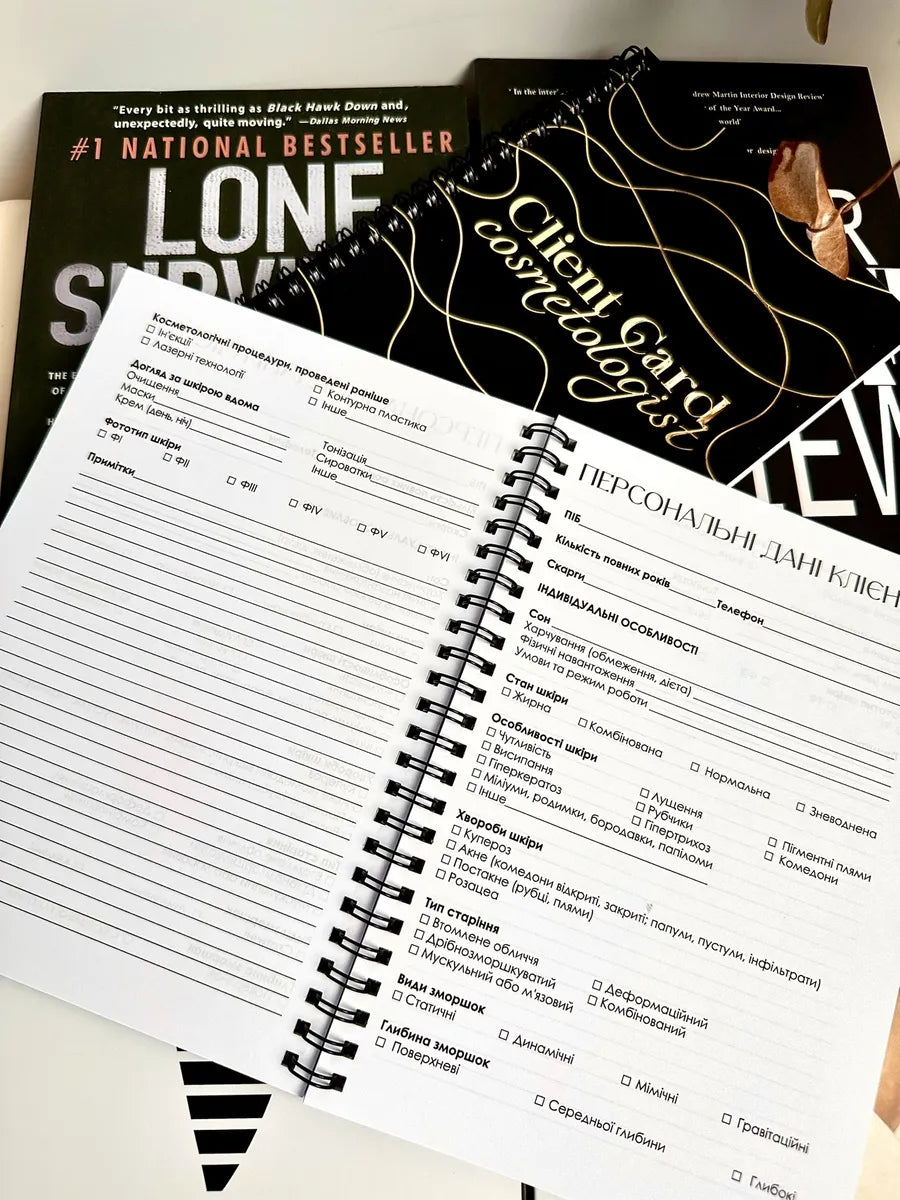 "Every bit as thrilling as Black Hawk Down and,
unexpectedly, quite moving." —Dallas Morning News
#1 NATIONAL BESTSELLER
LONE
drew Martin Interior Design Review'
of the Year Award...
world'
Client Card
cosmetologist
Косметологічні процедури, проведені раніше
☐ Ін'єкції
☐ Контурна пластика
☐ Лазерні технології
☐ Інше
Догляд за шкірою вдома
Очищення
Тонізація
Маски
Сироватки
Крем (день, ніч)
Інше
Фототип шкіри
☐ ФI ☐ ФII ☐ ФIII ☐ ФIV ☐ ФV ☐ ФVI
Примітки
ПЕРСОНАЛЬНІ ДАНІ КЛІЄН
ПІБ
Кількість повних років Телефон
Скарги
ІНДИВІДУАЛЬНІ ОСОБЛИВОСТІ
Сон
Харчування (обмеження, дієта)
Фізичні навантаження
Умови та режим роботи
Стан шкіри
☐ Жирна ☐ Комбінована ☐ Нормальна ☐ Зневоднена
Особливості шкіри
☐ Чутливість ☐ Лущення ☐ Пігментні плями
☐ Висипання ☐ Рубчики ☐ Комедони
☐ Гіперкератоз ☐ Гіпертрихоз
☐ Міліуми, родимки, бородавки, папіломи
☐ Інше
Хвороби шкіри
☐ Купероз
☐ Акне (комедони відкриті, закриті; папули, пустули, інфільтрати)
☐ Постакне (рубці, плями)
☐ Розацеа
Тип старіння
☐ Втомлене обличчя ☐ Деформаційний
☐ Дрібнозморшкуватий ☐ Комбінований
☐ Мускульний або м'язовий
Види зморшок
☐ Статичні ☐ Динамічні ☐ Мімічні ☐ Гравітаційні
Глибина зморшок
☐ Поверхневі ☐ Середньої глибини ☐ Глибокі